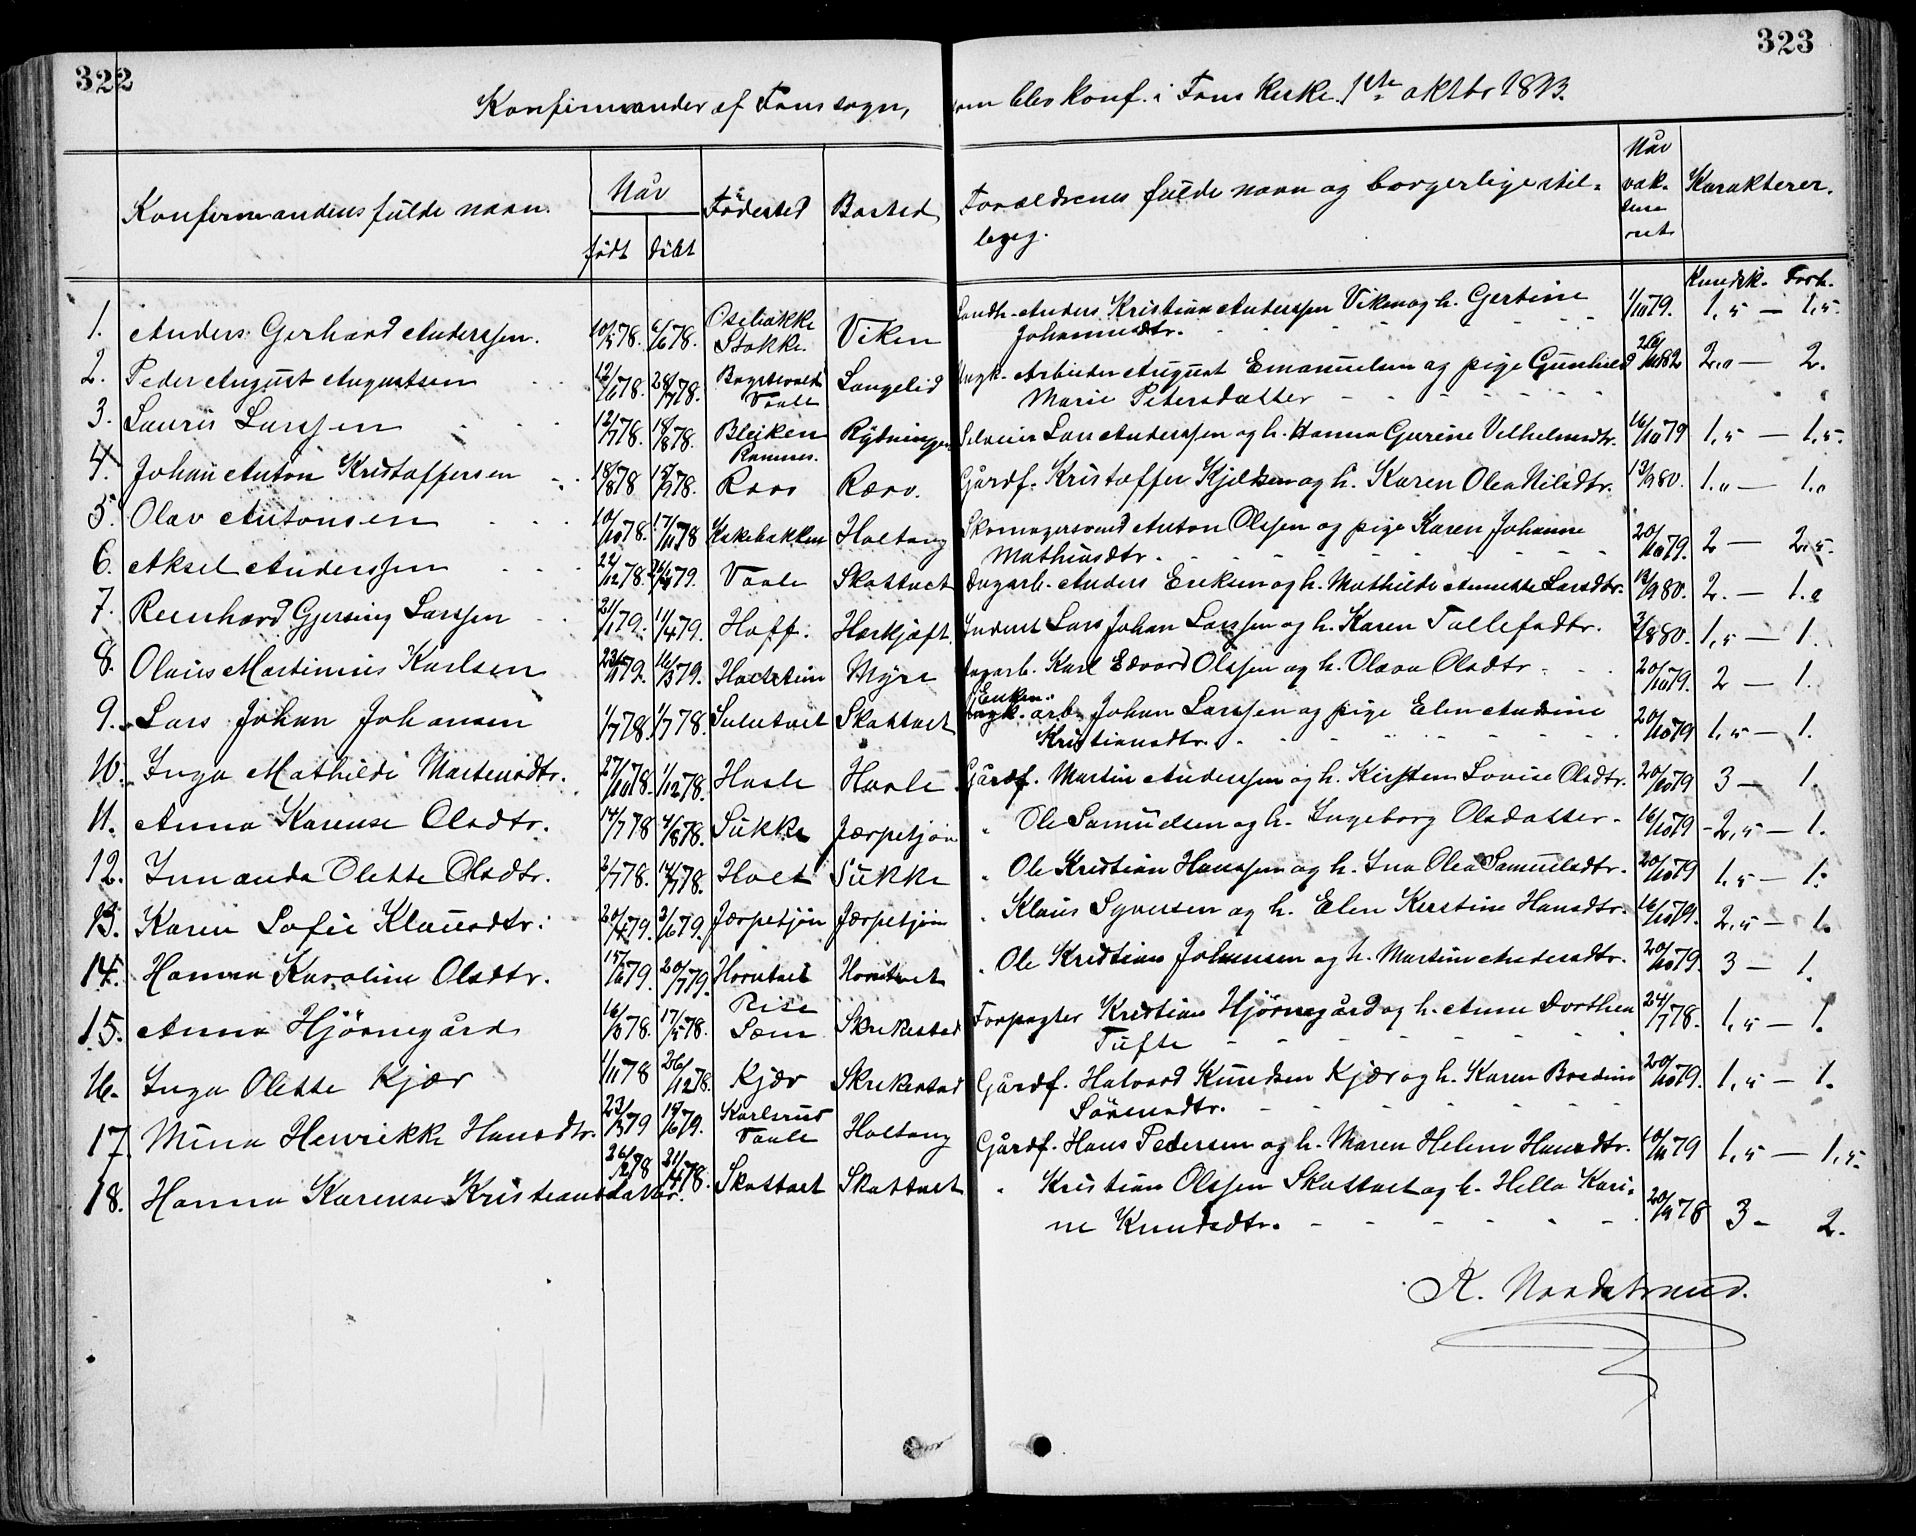 322
323
Konfirmander af Fons sogn, som blev konf. i Fons kirke 1ste oktbr 1893.
Konfirmandens fulde navn. Når født døbt Fødested Bosted Forældrenes fulde navn og borgerlige stil-
leg. Når vak-
cine
ret. Karakterer.
Kundsk. Forh.
1. Anders Gerhard Anderssen. 10/5 78. 6/6 78. Stokke. Viken Landh. Anders Kristian Anderssen Viken og h. Gertine
Johannesdtr. 1/10 79. 1,5 — 1,5.
2. Peder August Augustsen 12/6 78. 28/7 78. Vaale Langelid Ungk. Arbeider August Emanuelsen og pige Gunhild
Marie Petersdatter 26/10 82 2.0 — 2.
3. Lauris Larssen 12/7 78. 18/8 78. Bleiken Ramnes. Rydningen Selveier Lars Anderssen og h. Hanna Gurine Vilhelmsdtr. 16/10 79 1,5 — 1,5.
4. Johan Anton Kristoffersen 18/8 78 15/9 78. Ræv. Gårdf. Kristoffer Kjeldsen og h. Karen Olea Nilsdtr. 13/9 80. 1.0 — 1.0
5. Olav Antonsen 10/10 78. 17/11 78 Kakebakken Holtung Skomagersvend Anton Olssen og pige Karen Johanne
Mathiasdtr. 20/10 79. 2 — 2.5.
6. Aksel Anderssen 22/12 78. Vaale Skottvet Dagarb. Anders Eriksen og h. Mathilde Annette Larsdtr. 13/9 80. 2. — 1.0
7. Reinhard Gjersing Larssen 21/1 79. 1/4 79. Hoff. Inderst Lars Johan Larssen og h. Karen Tollefsdtr. 2/8 80. 1,5 — 1.
8. Olaus Martinius Karlsen 16/3 79. Myre Dagarb. Karl Edvard Olssen og h. Olava Olsdtr. 20/10 79. 2 — 1.
9. Lars Johan Johansen 1/7 78. Skottvet Enkem.
arb. Johan Larssen og pige Elen Andrine
Kristiansdtr. 20/10 79 1,5 — 1.
10. Inga Mathilde Martinsdtr. 27/10 78. 1/12 78. Hasle Hasle Gårdf. Martin Anderssen og h. Kirsten Lovise Olsdtr. 20/10 79 3 — 1.
11. Anna Karense Olsdtr. 14/7 78 4/8 78. Sukke Jærpetjøn " Ole Samuelsen og h. Ingeborg Olsdatter. 16/10 79 2,5 — 1.
12. Inanda Olette Olsdtr. 2/7 78. 14/7 78. Holt Sukke " Ole Kristian Hanssen og h. Ina Olea Samuelsdtr. 20/10 79 1,5 — 1.
13. Karen Sofie Klausdtr. 20/4 79. 2/6 79. Jærpetjøn Jærpetjøn " Klaus Syversen og h. Elen Kirstine Hansdtr. 16/10 79. 2,5 — 1.
14. Hanna Karoline Olsdtr. 20/7 79. Horntvet Horntvet " Ole Kristian Johansen og h. Martine Andersdtr. 20/10 79. 3 — 1.
15. Anna Hjørnegård 16/3 78. 17/5 78. Rise
Sæm Skrikestad Forpagter Kristian Hjørnegård og h. Anne Dorthea
Tufte 24/7 78. 1,5 — 1.
16. Inga Olette Kjær 1/11 78 26/12 78. Kjær Skrikestad Gårdf. Halvord Knudsen Kjær og h. Karen Bredine
Sørensdtr. 20/10 79. 1,5 — 1.
17. Mina Henrikke Hansdtr. 23/3 79 Karlsrud
Vaale Holtung Gårdf. Hans Pedersen og h. Maren Helene Hansdtr. 1,5 — 1,5.
18. Hanna Karense Kristiansdatter. 26/2 78 21/4 78. Skottvet Skottvet " Kristian Olssen Skottvet og h. Hella Kari-
ne Knudsdtr. 20/9 78 3 - 2.
K. Nordstrand.